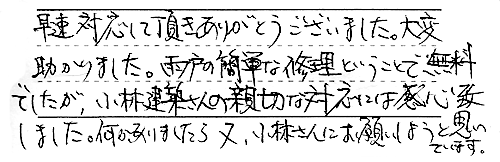 早速対応して頂きありがとうございました。大変
助かりました。雨戸の簡単な修理ということで無料
でしたが、小林建築さんの親切な対応には感心致
しました。何かありましたら又、小林さんにお願いしようと思い
ています。